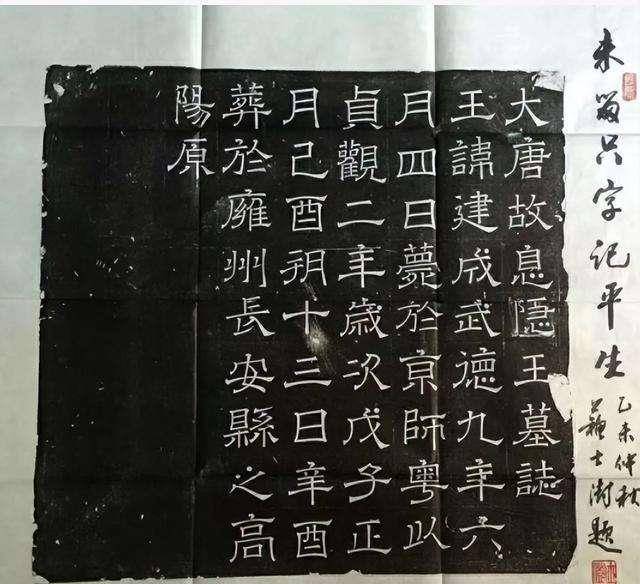 未留只字记平生
乙未仲秋
苏士澍题
大唐故息隱王墓誌
王諱建成武德九年六
月四日薨於京師粵以
貞觀二年歲次戊子正
月己酉朔十三日辛酉
葬於雍州長安縣之高
陽原